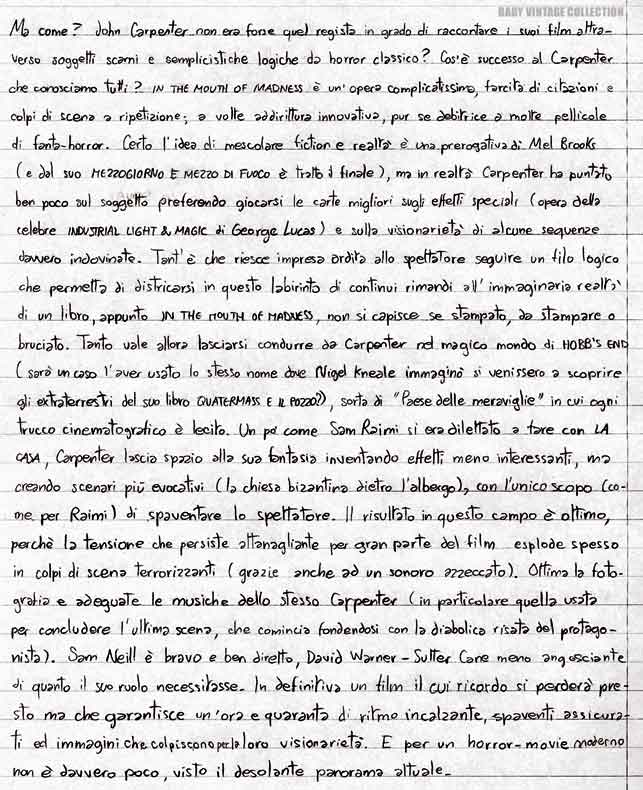 BABY VINTAGE COLLECTION
Ma come? John Carpenter non era forse quel regista in grado di raccontare i suoi film attra-
verso soggetti scarni e semplicistiche logiche da horror classico? Cos'è successo al Carpenter
che conosciamo tutti? IN THE MOUTH OF MADNESS è un'opera complicatissima, farcita di citazioni e
colpi di scena a ripetizione; a volte addirittura innovativa, pur se debitrice a molte pellicole
di fanta-horror. Certo l'idea di mescolare fiction e realtà è una prerogativa di Mel Brooks
(e dal suo MEZZOGIORNO E MEZZO DI FUOCO è tratto il finale), ma in realtà Carpenter ha puntato
ben poco sul soggetto preferendo giocarsi le carte migliori sugli effetti speciali (opera della
celebre INDUSTRIAL LIGHT & MAGIC di George Lucas) e sulla visionarietà di alcune sequenze
davvero indovinate. Tant'è che riesce impresa ardita allo spettatore seguire un filo logico
che permetta di districarsi in questo labirinto di continui rimandi all'immaginaria realtà
di un libro, appunto IN THE MOUTH OF MADNESS, non si capisce se stampato, da stampare o
bruciato. Tanto vale allora lasciarsi condurre da Carpenter nel magico mondo di HOBB'S END
(sarà un caso l'aver usato lo stesso nome dove Nigel Kneale immaginò si venissero a scoprire
gli extraterrestri del suo libro QUATERMASS E IL POZZO?), sorta di "Paese delle meraviglie" in cui ogni
trucco cinematografico è lecito. Un po' come Sam Raimi si era dilettato a fare con LA
CASA, Carpenter lascia spazio alla sua fantasia inventando effetti meno interessanti, ma
creando scenari più evocativi (la chiesa bizantina dietro l'albergo), con l'unico scopo (co-
me per Raimi) di spaventare lo spettatore. Il risultato in questo campo è ottimo,
perchè la tensione che persiste attanagliante per gran parte del film esplode spesso
in colpi di scena terrorizzanti (grazie anche ad un sonoro azzeccato). Ottima la foto-
grafia e adeguate le musiche dello stesso Carpenter (in particolare quella usata
per concludere l'ultima scena, che comincia fondendosi con la diabolica risata del protago-
nista). Sam Neill è bravo e ben diretto, David Warner-Sutter Cane meno angosciante
di quanto il suo ruolo necessitasse. In definitiva un film il cui ricordo si perderà pre-
sto ma che garantisce un'ora e quaranta di ritmo incalzante, spaventi assicura-
ti ed immagini che colpiscono per la loro visionarietà. E per un horror-movie moderno
non è davvero poco, visto il desolante panorama attuale.